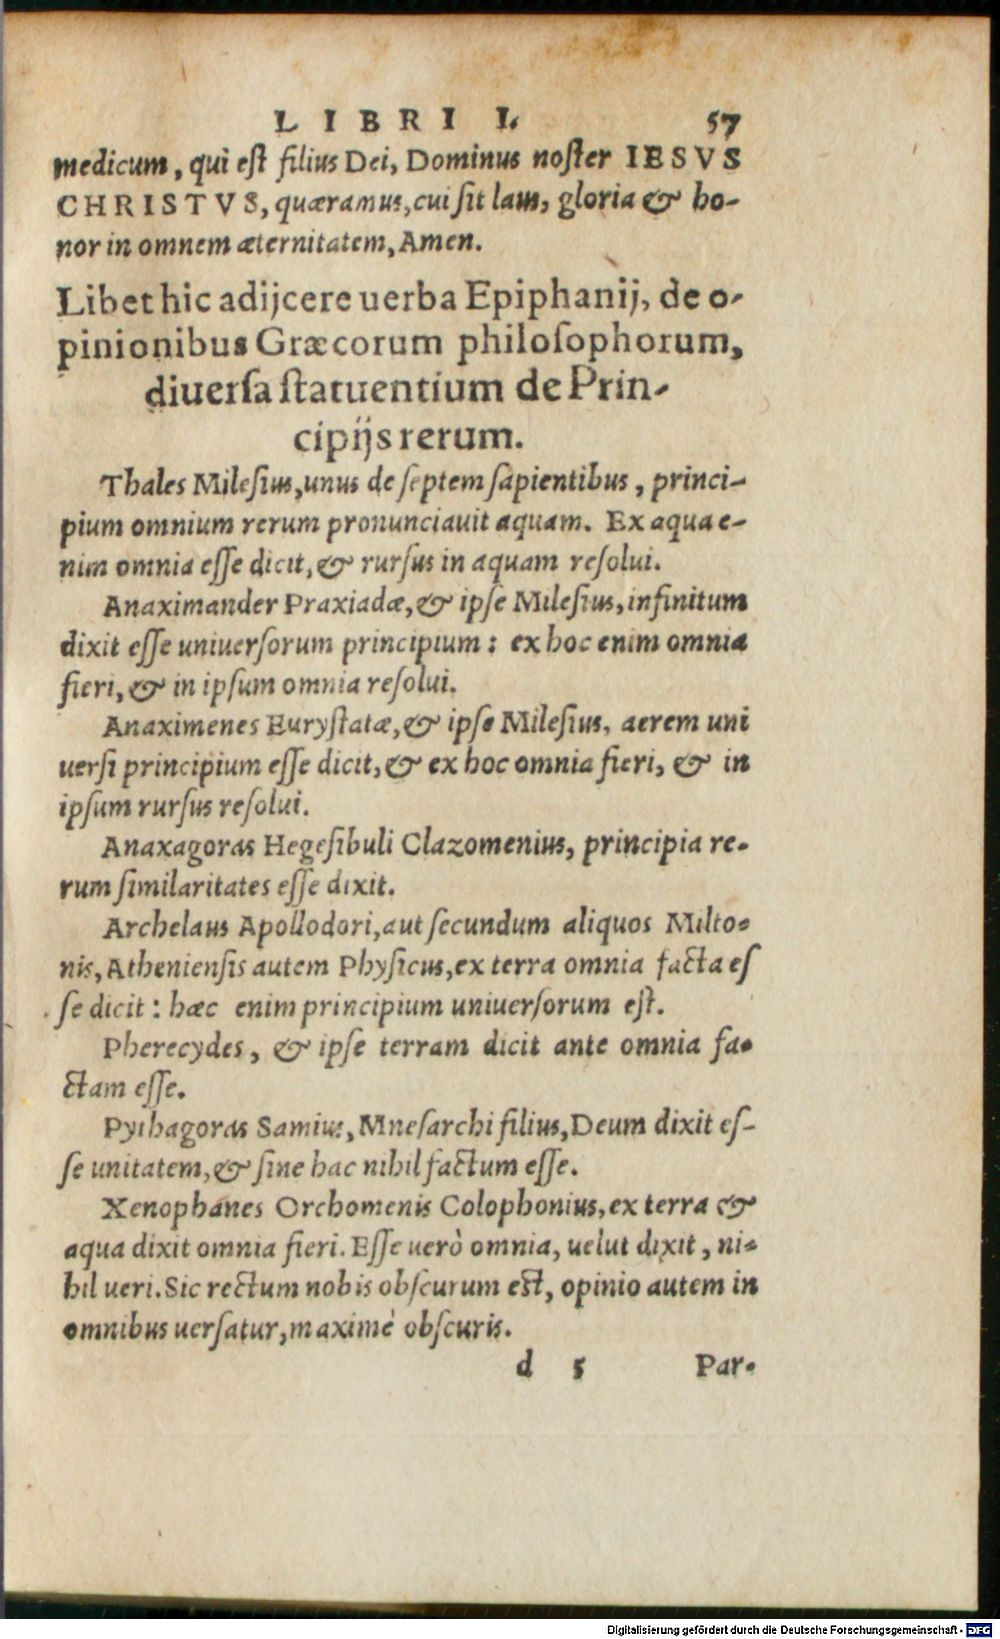 LIBRI I. 57
medicum, qui est filius Dei, Dominus noster IESVS
CHRISTVS, quæramus, cui sit laus, gloria & ho-
nor in omnem æternitatem, Amen.
Libet hic adijcere uerba Epiphanij, de o-
pinionibus Græcorum philosophorum,
diuersa statuentium de Prin-
cipijs rerum.
Thales Milesius, unus de septem sapientibus, princi-
pium omnium rerum pronunciauit aquam. Ex aqua e-
nim omnia esse dicit, & rursus in aquam resolui.
Anaximander Praxiadæ, & ipse Milesius, infinitum
dixit esse uniuersorum principium: ex hoc enim omnia
fieri, & in ipsum omnia resolui.
Anaximenes Eurystatæ, & ipse Milesius, aerem uni
uersi principium esse dicit, & ex hoc omnia fieri, & in
ipsum rursus resolui.
Anaxagoras Hegesibuli Clazomenius, principia re-
rum similaritates esse dixit.
Archelaus Apollodori, aut secundum aliquos Milto-
nis, Atheniensis autem Physicus, ex terra omnia facta es
se dicit: hæc enim principium uniuersorum est.
Pherecydes, & ipse terram dicit ante omnia fa-
ctam esse.
Pythagoras Samius, Mnesarchi filius, Deum dixit es-
se unitatem, & sine hac nihil factum esse.
Xenophanes Orchomenis Colophonius, ex terra &
aqua dixit omnia fieri. Esse uerò omnia, uelut dixit, ni-
hil ueri. Sic rectum nobis obscurum est, opinio autem in
omnibus uersatur, maximè obscuris.
d 5 Par-
Digitalisierung gefördert durch die Deutsche Forschungsgemeinschaft - DFG